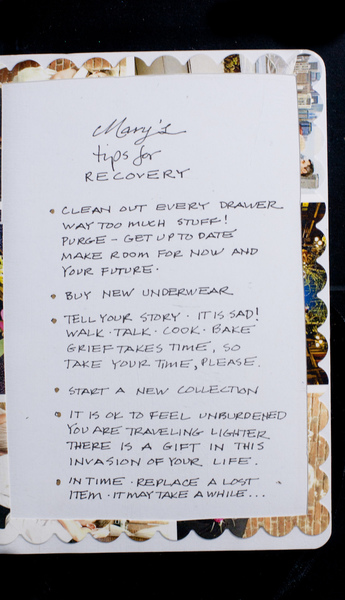 Mary's
tips for
RECOVERY
CLEAN OUT EVERY DRAWER
WAY TOO MUCH STUFF!
PURGE - GET UP TO DATE
MAKE ROOM FOR NOW AND
YOUR FUTURE.
BUY NEW UNDERWEAR
TELL YOUR STORY. IT IS SAD!
WALK. TALK. COOK. BAKE
GRIEF TAKES TIME, SO
TAKE YOUR TIME, PLEASE.
START A NEW COLLECTION
IT IS OK TO FEEL UNBURDENED
YOU ARE TRAVELING LIGHTER
THERE IS A GIFT IN THIS
INVASION OF YOUR LIFE.
IN TIME. REPLACE A LOST
ITEM. IT MAY TAKE A WHILE...